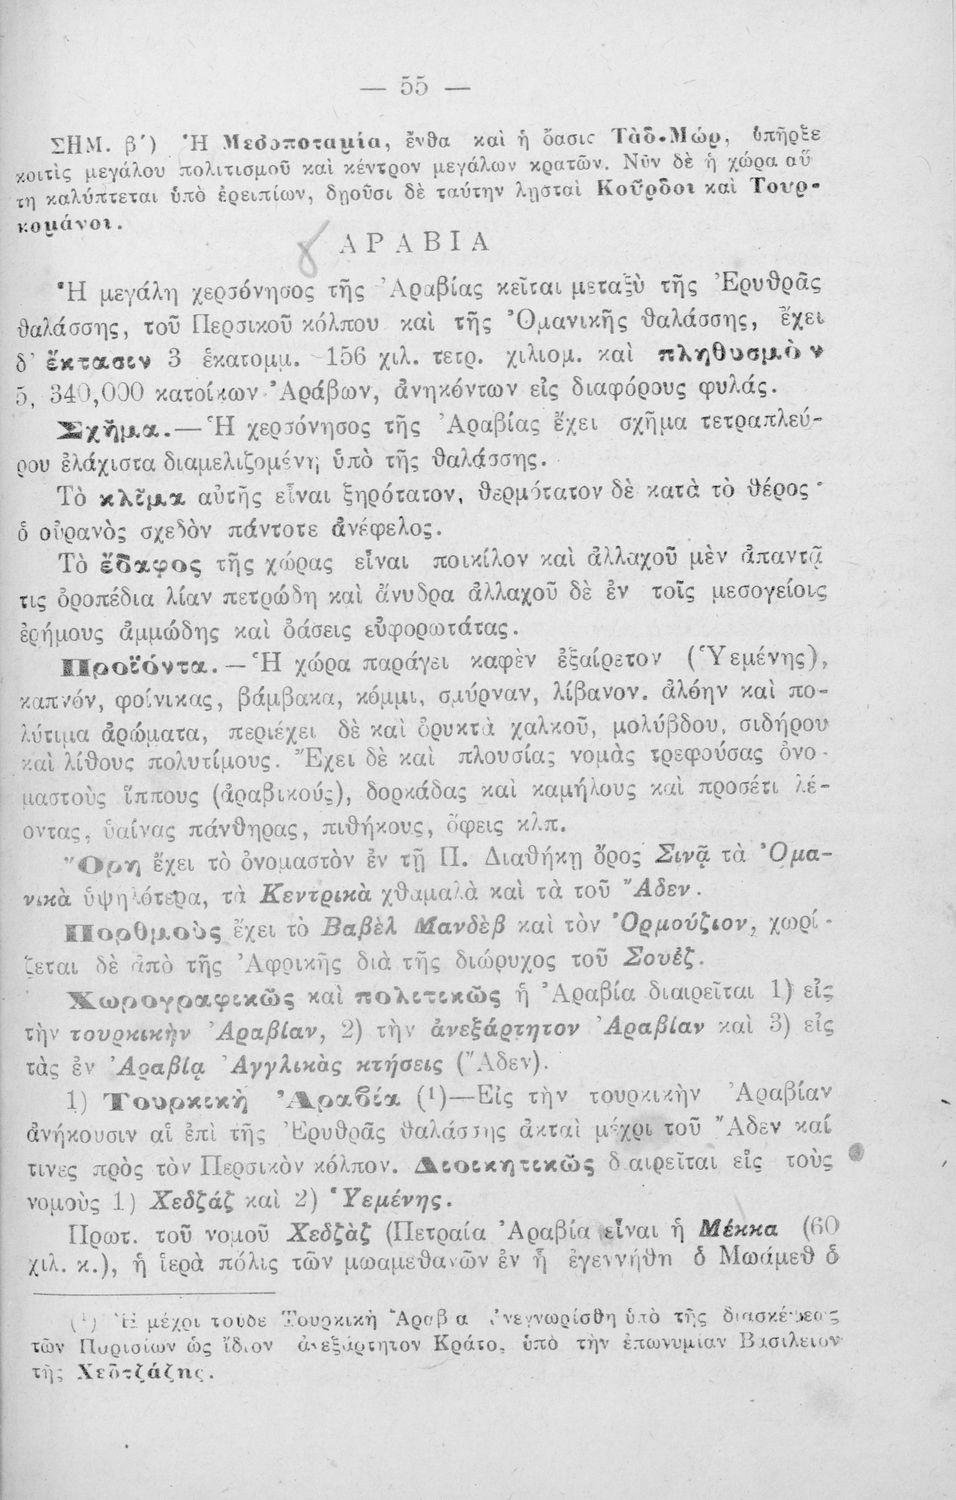 — 55 —
ΣΗΜ. β΄) Ἡ Μεσοποταμία, ἔνθα καὶ ἡ ὄασις Τὰδ-Μώρ, ὑπῆρξε
κοιτὶς μεγάλου πολιτισμοῦ καὶ κέντρον μεγάλων κρατῶν. Νῦν δὲ ἡ χώρα αὕ
τη καλύπτεται ὑπὸ ἐρειπίων, δῃοῦσι δὲ ταύτην λῃσταὶ Κοῦρδοι καὶ Τουρ-
κομάνοι.
γ ΑΡΑΒΙΑ
Ἡ μεγάλη χερσόνησος τῆς Ἀραβίας κεῖται μεταξὺ τῆς Ἐρυθρᾶς
θαλάσσης, τοῦ Περσικοῦ κόλπου καὶ τῆς Ὀμανικῆς θαλάσσης, ἔχει
δ' ἔκτασιν 3 ἑκατομμ. 156 χιλ. τετρ. χιλιομ. καὶ πληθυσμὸν
5, 340,000 κατοίκων Ἀράβων, ἀνηκόντων εἰς διαφόρους φυλάς.
Σχῆμα.—Ἡ χερσόνησος τῆς Ἀραβίας ἔχει σχῆμα τετραπλεύ-
ρου ἐλάχιστα διαμελιζομένη ὑπὸ τῆς θαλάσσης.
Τὸ κλῖμα αὐτῆς εἶναι ξηρότατον, θερμότατον δὲ κατὰ τὸ θέρος·
ὁ οὐρανὸς σχεδὸν πάντοτε ἀνέφελος.
Τὸ ἔδαφος τῆς χώρας εἶναι ποικίλον καὶ ἀλλαχοῦ μὲν ἀπαντᾷ
τις ὀροπέδια λίαν πετρώδη καὶ ἄνυδρα ἀλλαχοῦ δὲ ἐν τοῖς μεσογείοις
ἐρήμους ἀμμώδης καὶ ὀάσεις εὐφορωτάτας.
Προϊόντα.—Ἡ χώρα παράγει καφὲν ἐξαίρετον (Ὑεμένης),
καπνόν, φοίνικας, βάμβακα, κόμμι, σμύρναν, λίβανον. ἀλόην καὶ πο-
λύτιμα ἀρώματα, περιέχει δὲ καὶ ὀρυκτὰ χαλκοῦ, μολύβδου, σιδήρου
καὶ λίθους πολυτίμους. Ἔχει δὲ καὶ πλουσίας νομὰς τρεφούσας ὀνο-
μαστοὺς ἵππους (ἀραβικούς), δορκάδας καὶ καμήλους καὶ προσέτι λέ-
οντας, ὑαίνας πάνθηρας, πιθήκους, ὄφεις κλπ.
Ὄρη ἔχει τὸ ὀνομαστὸν ἐν τῇ Π. Διαθήκῃ ὄρος Σινᾶ τὰ Ὀμα-
νικὰ ὑψηλότερα, τὰ Κεντρικὰ χθαμαλὰ καὶ τὰ τοῦ Ἄδεν.
Πορθμοὺς ἔχει τὸ Βαβὲλ Μανδὲβ καὶ τὸν Ὀρμούζιον, χωρί-
ζεται δὲ ἀπὸ τῆς Ἀφρικῆς διὰ τῆς διώρυχος τοῦ Σουέζ.
Χωρογραφικῶς καὶ πολιτικῶς ἡ Ἀραβία διαιρεῖται 1) εἰς
τὴν τουρκικὴν Ἀραβίαν, 2) τὴν ἀνεξάρτητον Ἀραβίαν καὶ 3) εἰς
τὰς ἐν Ἀραβίᾳ Ἀγγλικὰς κτήσεις (Ἄδεν).
1) Τουρκικὴ Ἀραβία (¹)—Εἰς τὴν τουρκικὴν Ἀραβίαν
ἀνήκουσιν αἱ ἐπὶ τῆς Ἐρυθρᾶς θαλάσσης ἀκταὶ μέχρι τοῦ Ἄδεν καί
τινες πρὸς τὸν Περσικὸν κόλπον. Διοικητικῶς διαιρεῖται εἰς τοὺς
νομοὺς 1) Χεδζάζ καὶ 2) Ὑεμένης.
Πρωτ. τοῦ νομοῦ Χεδζὰζ (Πετραία Ἀραβία εἶναι ἡ Μέκκα (60
χιλ. κ.), ἡ ἱερὰ πόλις τῶν μωαμεθανῶν ἐν ᾗ ἐγεννήθη ὁ Μωάμεθ ὁ
(¹) Ἡ μέχρι τοῦδε Τουρκικὴ Ἀραβία ἀνεγνωρίσθη ὑπὸ τῆς διασκέψεως
τῶν Παρισίων ὡς ἴδιον ἀνεξάρτητον Κράτος ὑπὸ τὴν ἐπωνυμίαν Βασίλειον
τῆς Χεδτζάζης.